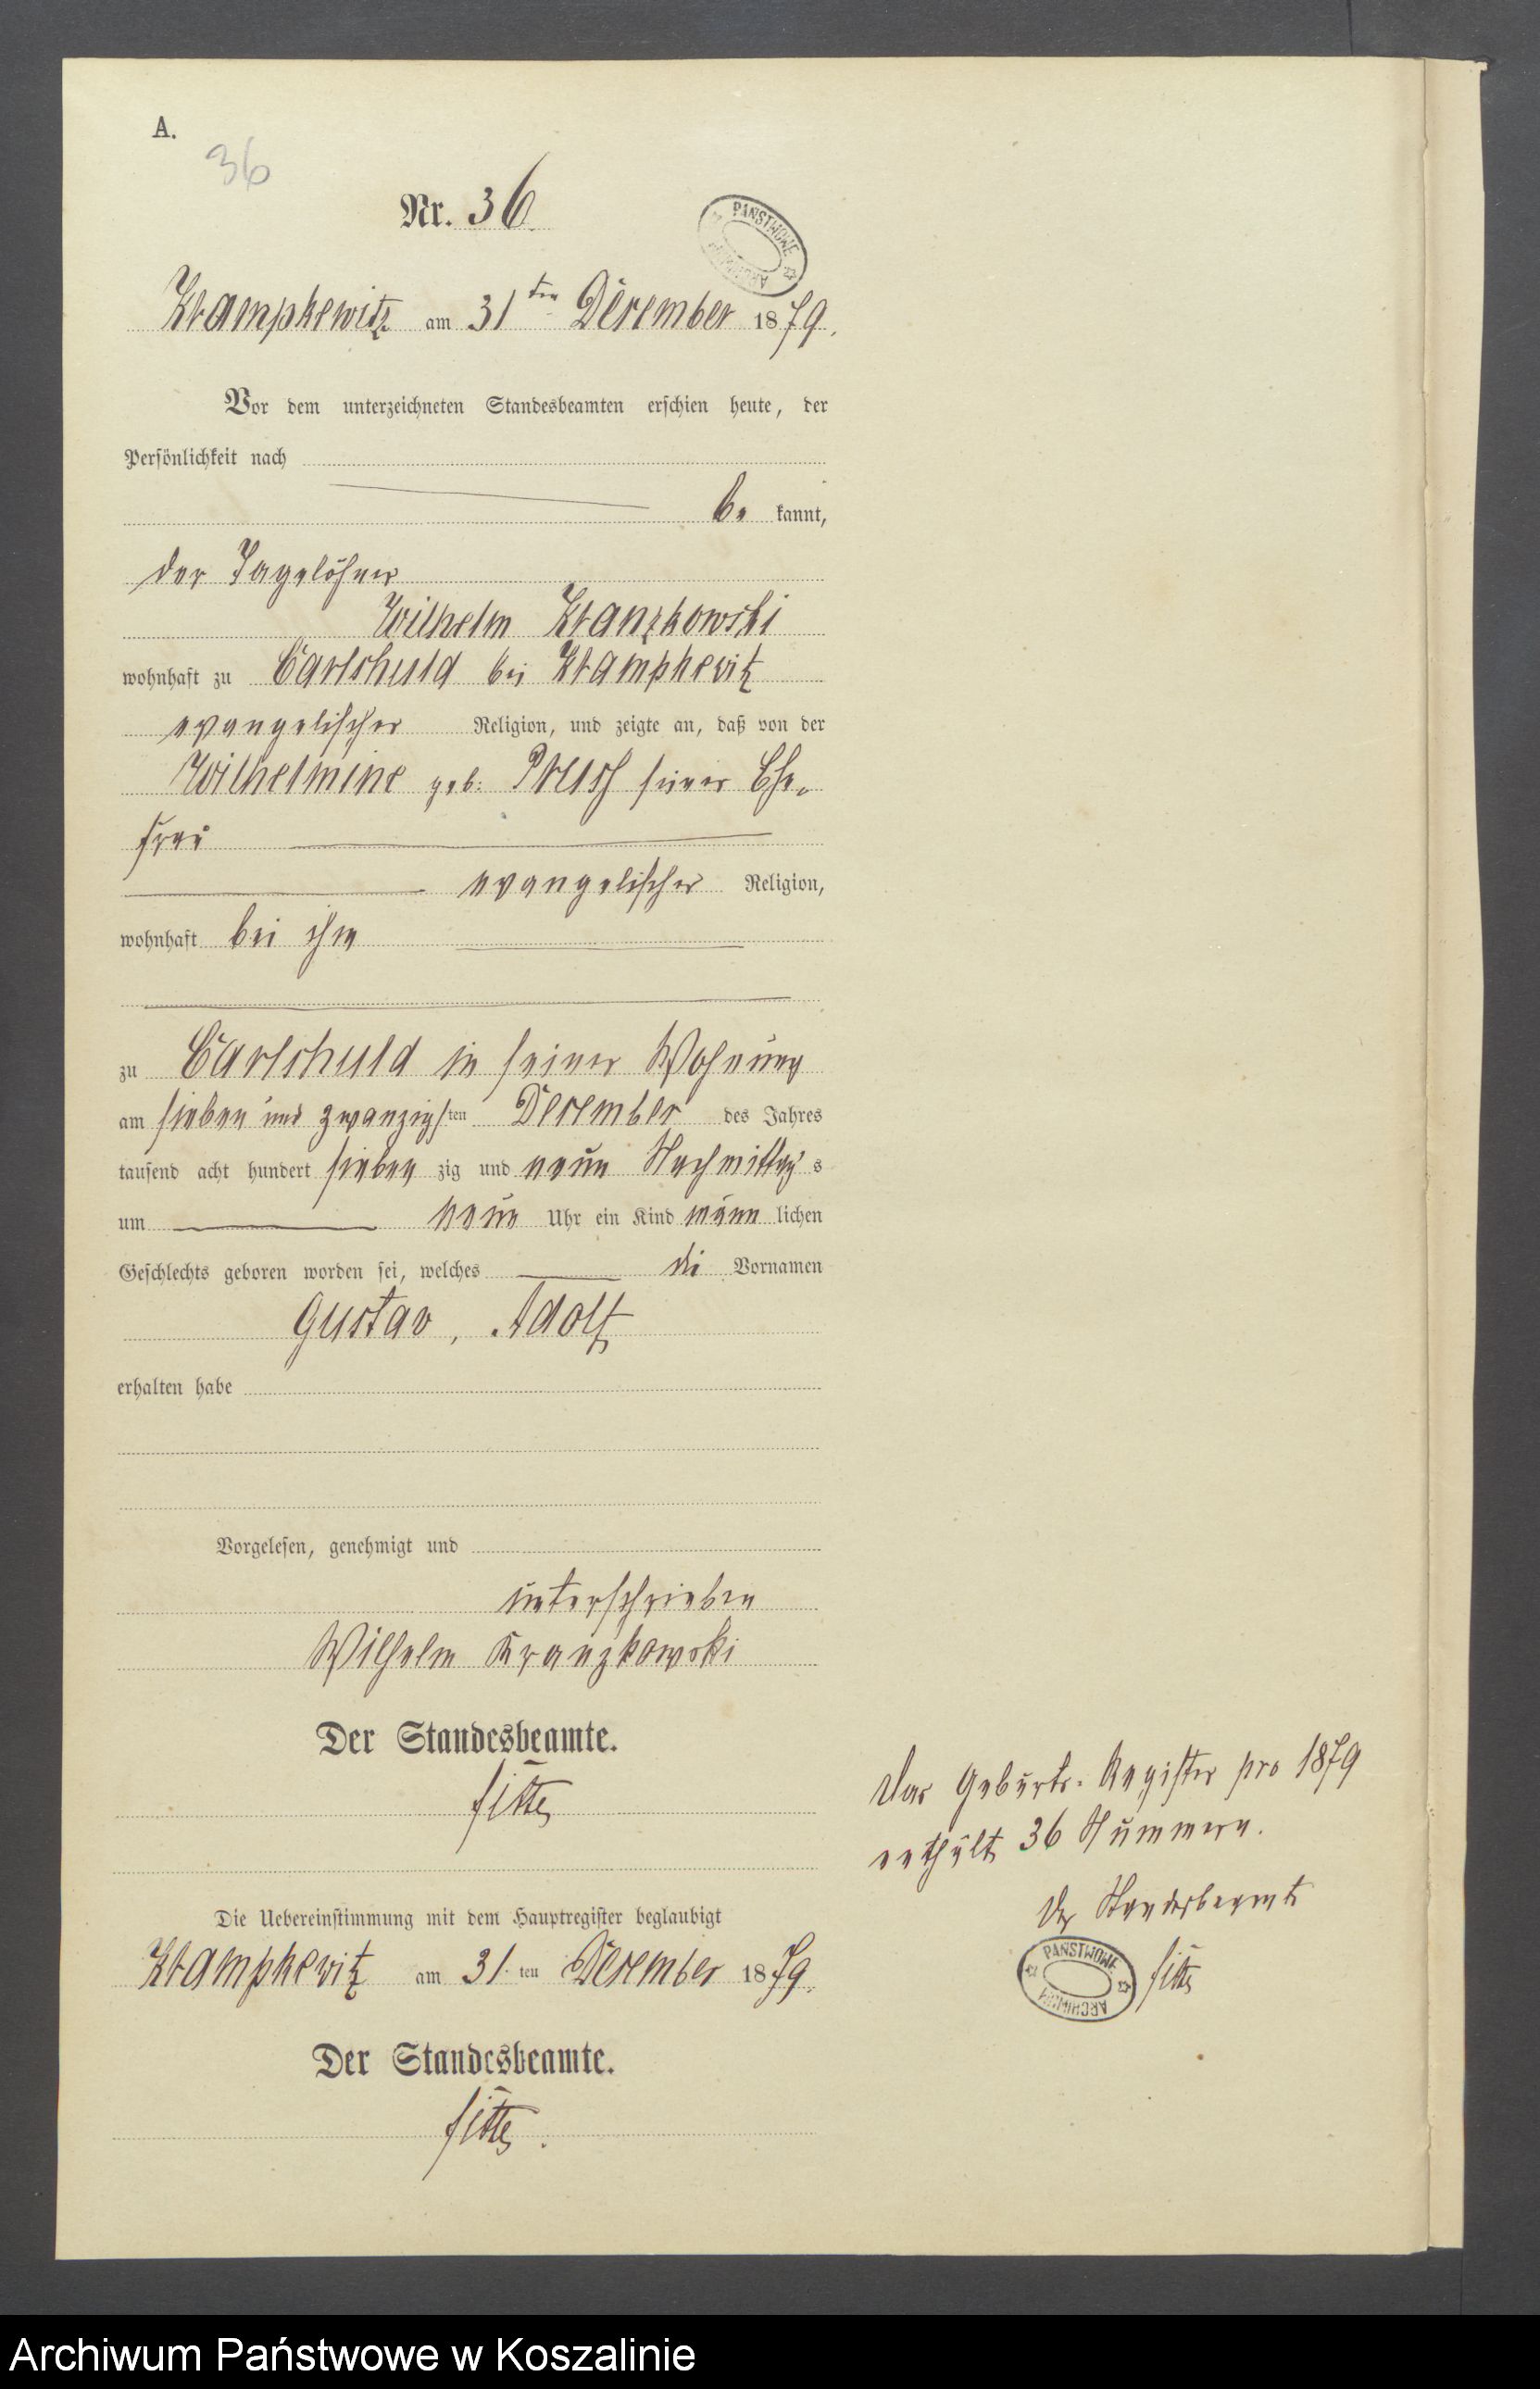 A.
36
Nr. 36.
PAŃSTWOWE ARCHIWUM
Krampkewitz am 31ten December 1879.
Vor dem unterzeichneten Standesbeamten erschien heute, der
Persönlichkeit nach
be kannt,
der Tagelöhner
Wilhelm Kranzkowski
wohnhaft zu Carlshuld bei Krampkevitz
evangelischer Religion, und zeigte an, daß von der
Wilhelmine geb: seiner Ehe-
frau
evangelischer Religion,
wohnhaft bei ihm
zu Carlshuld in seiner Wohnung
am sieben und zwanzigsten December des Jahres
tausend acht hundert sieben zig und neun Nachmittag s
um neun Uhr ein Kind männ lichen
Geschlechts geboren worden sei, welches die Vornamen
Gustav, Adolf
erhalten habe
Vorgelesen, genehmigt und
unterschrieben
Wilhelm Kranzkowski
Der Standesbeamte.
Die Uebereinstimmung mit dem Hauptregister beglaubigt
Krampkevitz am 31. ten December 1879.
Der Standesbeamte.
Das Geburts-Register pro 1879
enthält 36 Nummern.
Der Standesbeamte
PAŃSTWOWE ARCHIWUM
Archiwum Państwowe w Koszalinie